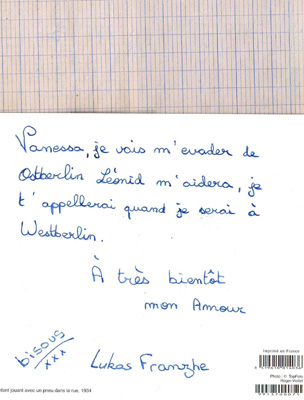 Vanessa, je vais m'evader de
Ostberlin Léonid m'aidera, je
t'appellerai quand je serai à
Westberlin.
À très bientôt
mon Amour
bisous
xxx
Lukas Franzhe
Imprimé en France
Photo : © TopFoto
Roger-Viollet
nfant jouant avec un pneu dans la rue, 1934